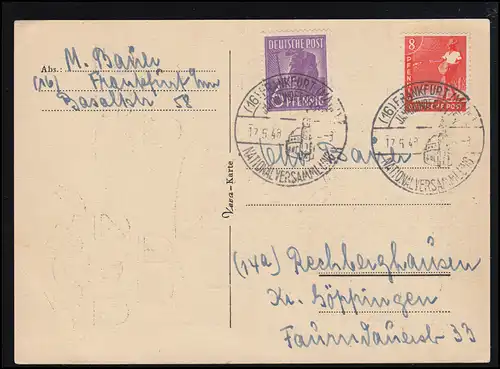 Abs. M. Bauer
(16) Frankfurt/M
Basaltstr 58
DEUTSCHE POST
6 PFENNIG
8 PFENNIG
DEUTSCHE POST
(16) FRANKFURT
17.5.48
NATIONALVERSAMMLUNG
(16) FRANKFURT
17.5.48
NATIONALVERSAMMLUNG
Vera-Karte
(14a) Rechberghausen
Kr. Göppingen
Faurndauerstr 33